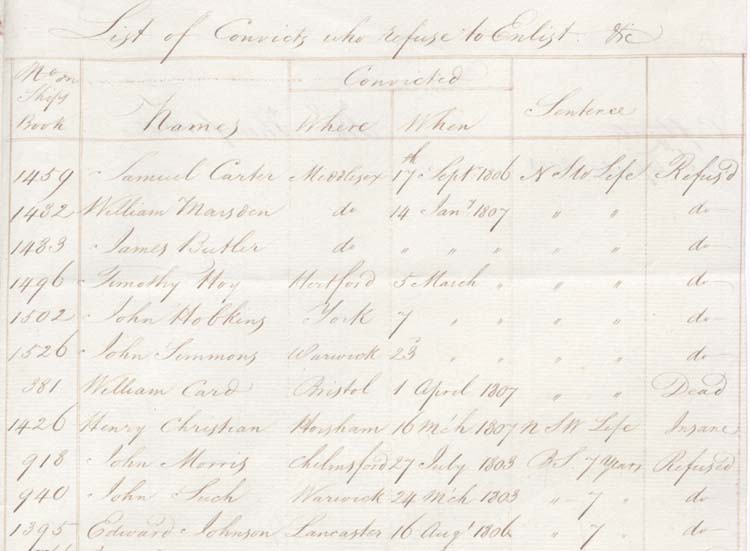 List of Convicts who refuse to Enlist. &c
No on Ships Book Names Convicted Where When Sentence
1459 Samuel Carter Middlesex 17th Sept 1806 N SW Life Refus'd
1432 William Marsden do 14 Jany 1807 " " do
1433 James Butler do " " " " " do
1496 Timothy Hoy Hertford 5 March " " " do
1502 John Hobkins York 7 " " " " do
1526 John Simmons Warwick 23d " " " " do
381 William Card Bristol 1 April 1807 " " Dead
1426 Henry Christian Horsham 16 Mch 1807 N SW Life Insane
918 John Morris Chelmsford 27 July 1803 B.S. 7 Years Refused
940 John Such Warwick 24 Mch 1803 " 7 " do
1395 Edward Johnson Lancaster 16 Augt 1806 " 7 " do